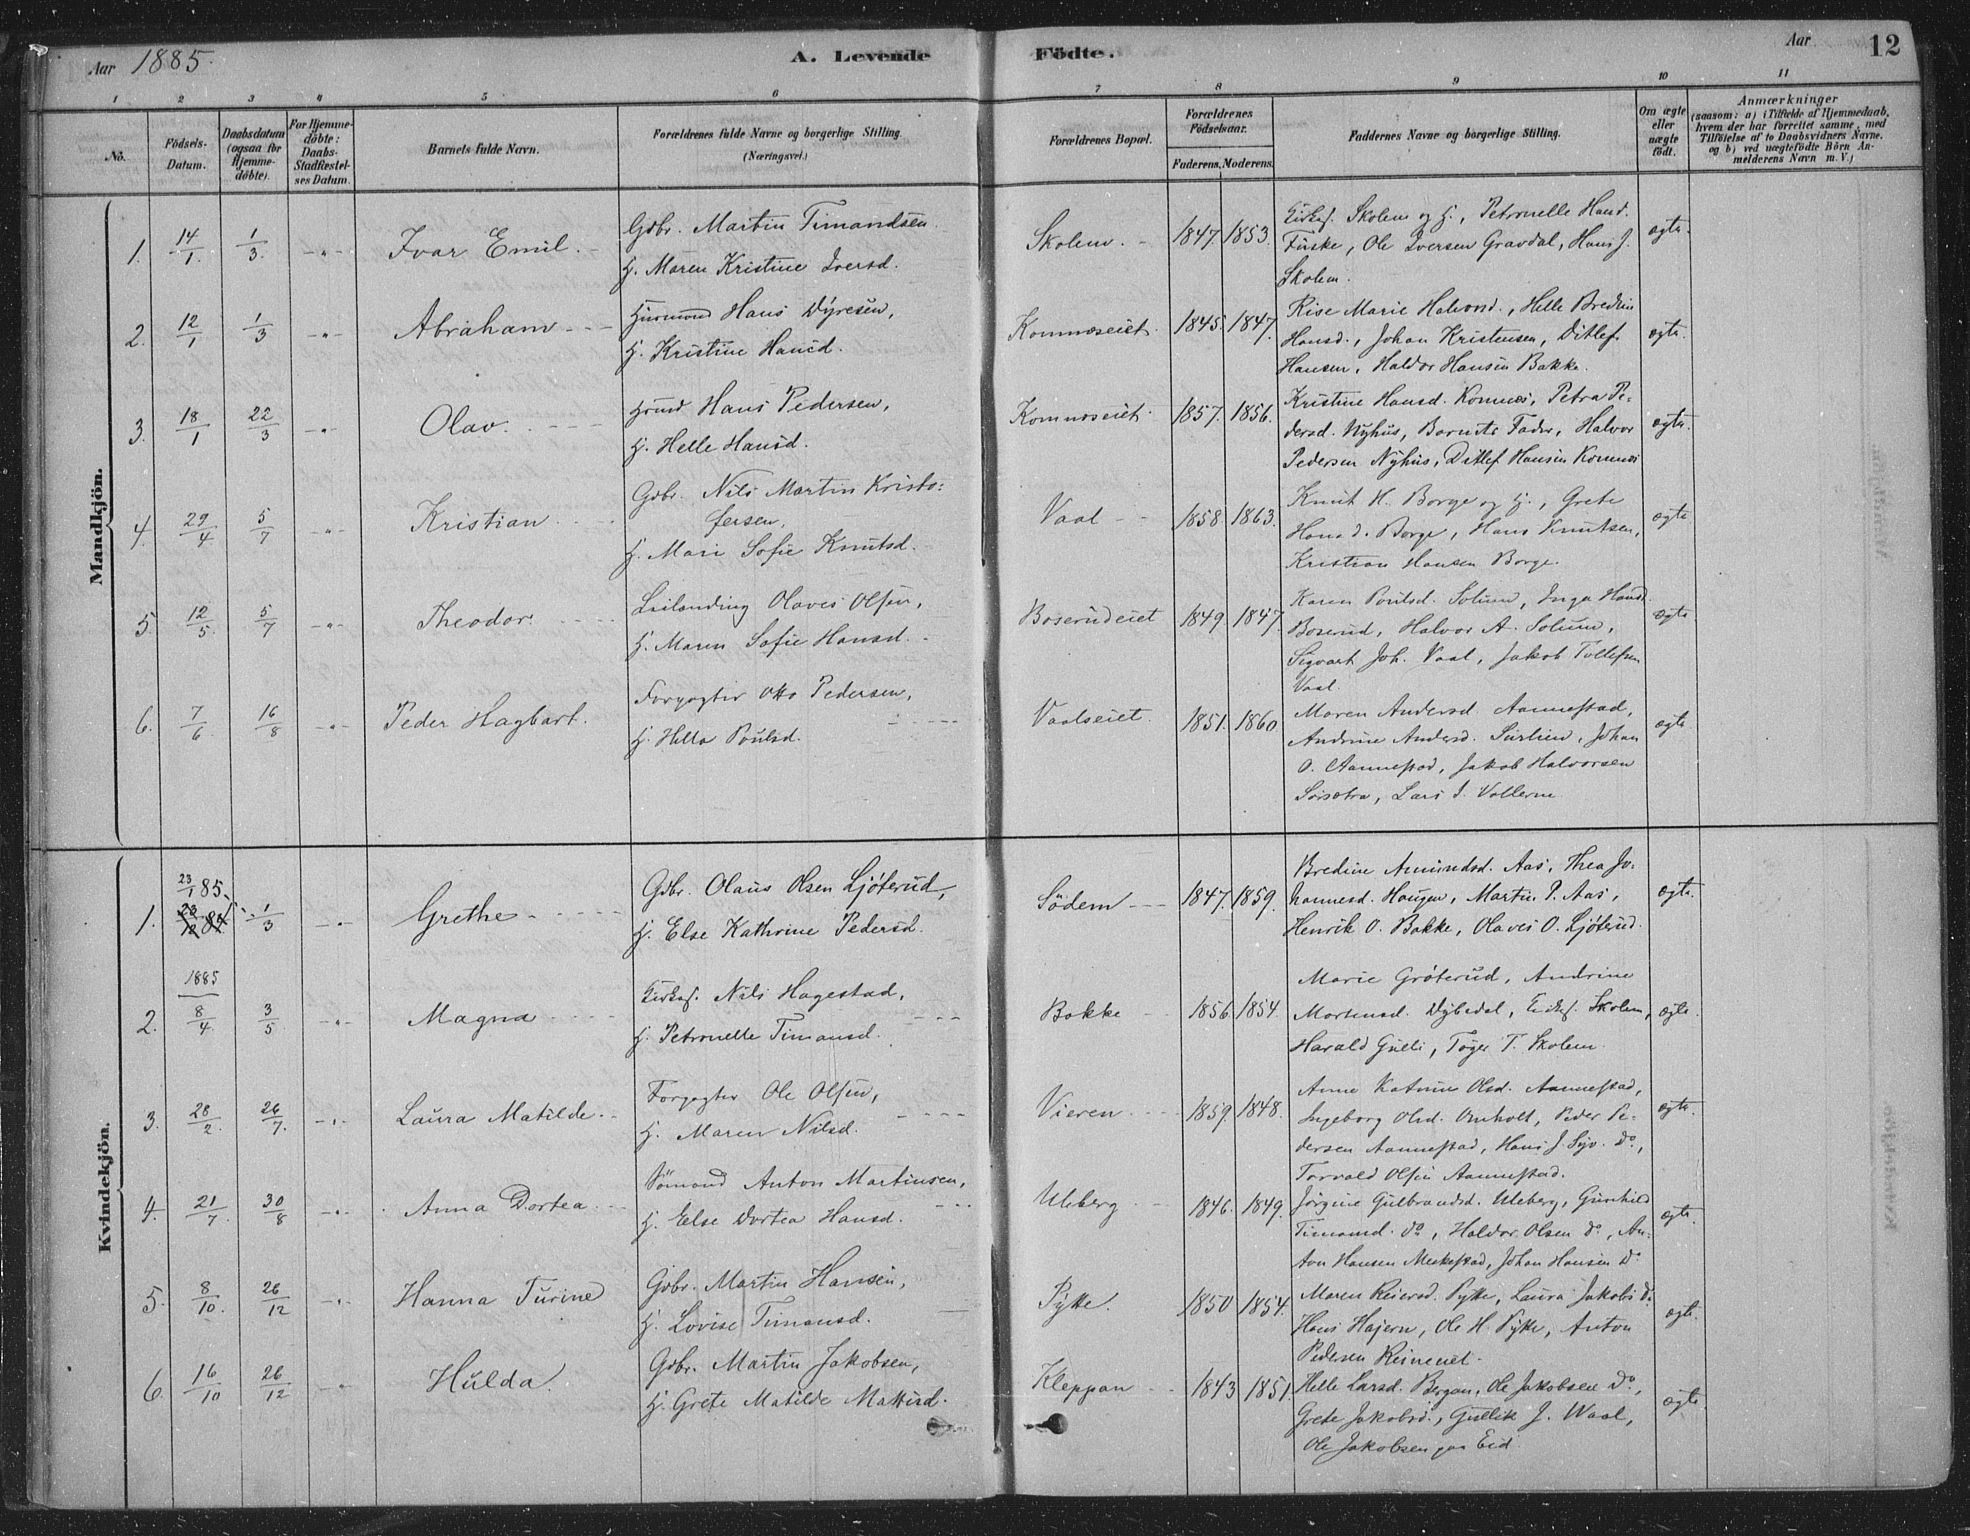 Aar 1885. A. Levende Födte. Aar 12
1 2 3 4 5 6 7 8 9 10 11
No. Födsels-Datum. Daabsdatum (ogsaa for Hjemmedöbte). For Hjemmedöbte: Daabs-Stadfæstelses Datum. Barnets fulde Navn. Forældrenes fulde Navne og borgerlige Stilling. (Næringsvei.) Forældrenes Bopæl. Forældrenes Födselsaar. Faderens. Moderens. Faddernes Navne og borgerlige Stilling. Om ægte eller uægte födt. Anmærkninger
(saasom: a) i Tilfælde af Hjemmedaab, hvem der har forrettet samme, med Tilföielse af to Daabsvidners Navne, og b) ved uægtefödte Börn Anmelderens Navn m. V.)
Mandkjön.
1. 14/1. 1/3. -„- Ivar Emil. Gdbr. Martin Timandsen Skolem. 1847. 1853. Kirkes. Skolem og H., Petronelle Hansd. ægte.
H. Maren Kristine Iversd. Fuske, Ole Iversen Gravdal, Hans J.
Skolem.
2. 12/1 1/3 -„- Abraham Husmand Hans Dyresen, Komnæseiet. 1845. 1847. Rise Marie Halvorsd., Helle Bredine ægte.
H. Kristine Hansd. Hansd., Johan Kristensen, Ditlef
Hansen, Haldor Hansen Bakke.
3. 18/1 22/3 -„- Olav. Hans Pedersen, Komnæseiet. 1857. 1856. Kristine Hansd. Komnæs, Petra Pe- ægte.
H. Helle Hansd. dersd. Nyhus, Barnets Fader, Halvor
Pedersen Nyhus, Ditlef Hansen Komnæs
4. 29/4 5/7 -„- Kristian Gdbr. Nils Martin Kristo- Vaal 1858. 1863. Knut H. Borge og H., Grete ægte
fersen, Hansd. Borge, Hans Knutsen,
H. Mari Sofie Knutsd. Kristian Hansen Borge.
5. 12/5. 5/7 -„- Theodor. Leilending Olaves Olsen, Boserudeiet 1849. 1847. Karen Poulsd. Solum, Inga Hansd. ægte
H. Maren Sofie Hansd. Boserud, Halvor A. Solum,
Sigvart Joh. Vaal, Jakob Tollefsen
Vaal.
6. 7/6 16/8 -„- Peder Hagbart. Forpagter Otto Pedersen, Vaalseiet. 1851. 1860 Maren Andersd Aannestad, ægte
H. Helle Poulsd. Andrine Andersd. Surlien, Johan
O. Aannestad, Jakob Halvorsen
Sørsetra, Lars J. Vollerne
Kvindekjön.
1. 23/1 85. 23/12 84. 1/3 -„- Grethe Gdbr. Olaus Olsen Ljøterud, Södem 1847. 1859. Bredine Amundsd. Aas, Thea Jo- ægte.
H. Else Kathrine Pedersd. hannesd. Haugen, Martin P. Aas,
Henrik O. Bakke, Olaves O. Ljøterud.
1885
2. 8/4. 3/5 -„- Magna Kirkes. Nils Hagestad, Bakke 1856. 1854. Marie Grøterud, Andrine ægte.
H. Petronelle Timansd. Mortensd. Dybedal, Kirkes. Skolem,
Harald Gulli, Tøger T. Skolem.
3. 28/2. 26/7. -„- Laura Matilde. Forpagter Ole Olsen, Vieren. 1859. 1848. Anne Katrine Olsd. Aannestad, ægte.
H. Maren Nilsd. Ingeborg Olsd. Omholt, Peder Pe-
dersen Aannestad, Hans J. do,
Torvald Olsen Aannestad.
4. 21/7. 30/8 -„- Anna Dortea Sømand Anton Martinsen, Uleberg 1846. 1849. Jørgine Gulbrandsd. Uleberg, Gunhild ægte.
H. Else Dortea Hansd. Timansd. do, Haldor Olsen do, An-
ton Hansen Meskestad, Johan Hansen do
5. 8/10. 26/12 -„- Hanna Turine Gdbr. Martin Hansen, Pytte. 1850 1854. Maren Reiersd. Pytte, Laura Jakobsd. ægte.
H. Lovise Timansd. Hans Hajern, Ole H. Pytte, Anton
Pedersen
6. 16/10 26/12 -„- Hulda. Gdbr. Martin Jakobsen, Kleppan 1843 1851. Helle Larsd. Bergan, Ole Jakobsen do, ægte.
H. Grete Matilde Mattisd. Grete Jakobsd., Gullik J. Waal,
Ole Jakobsen paa Eid